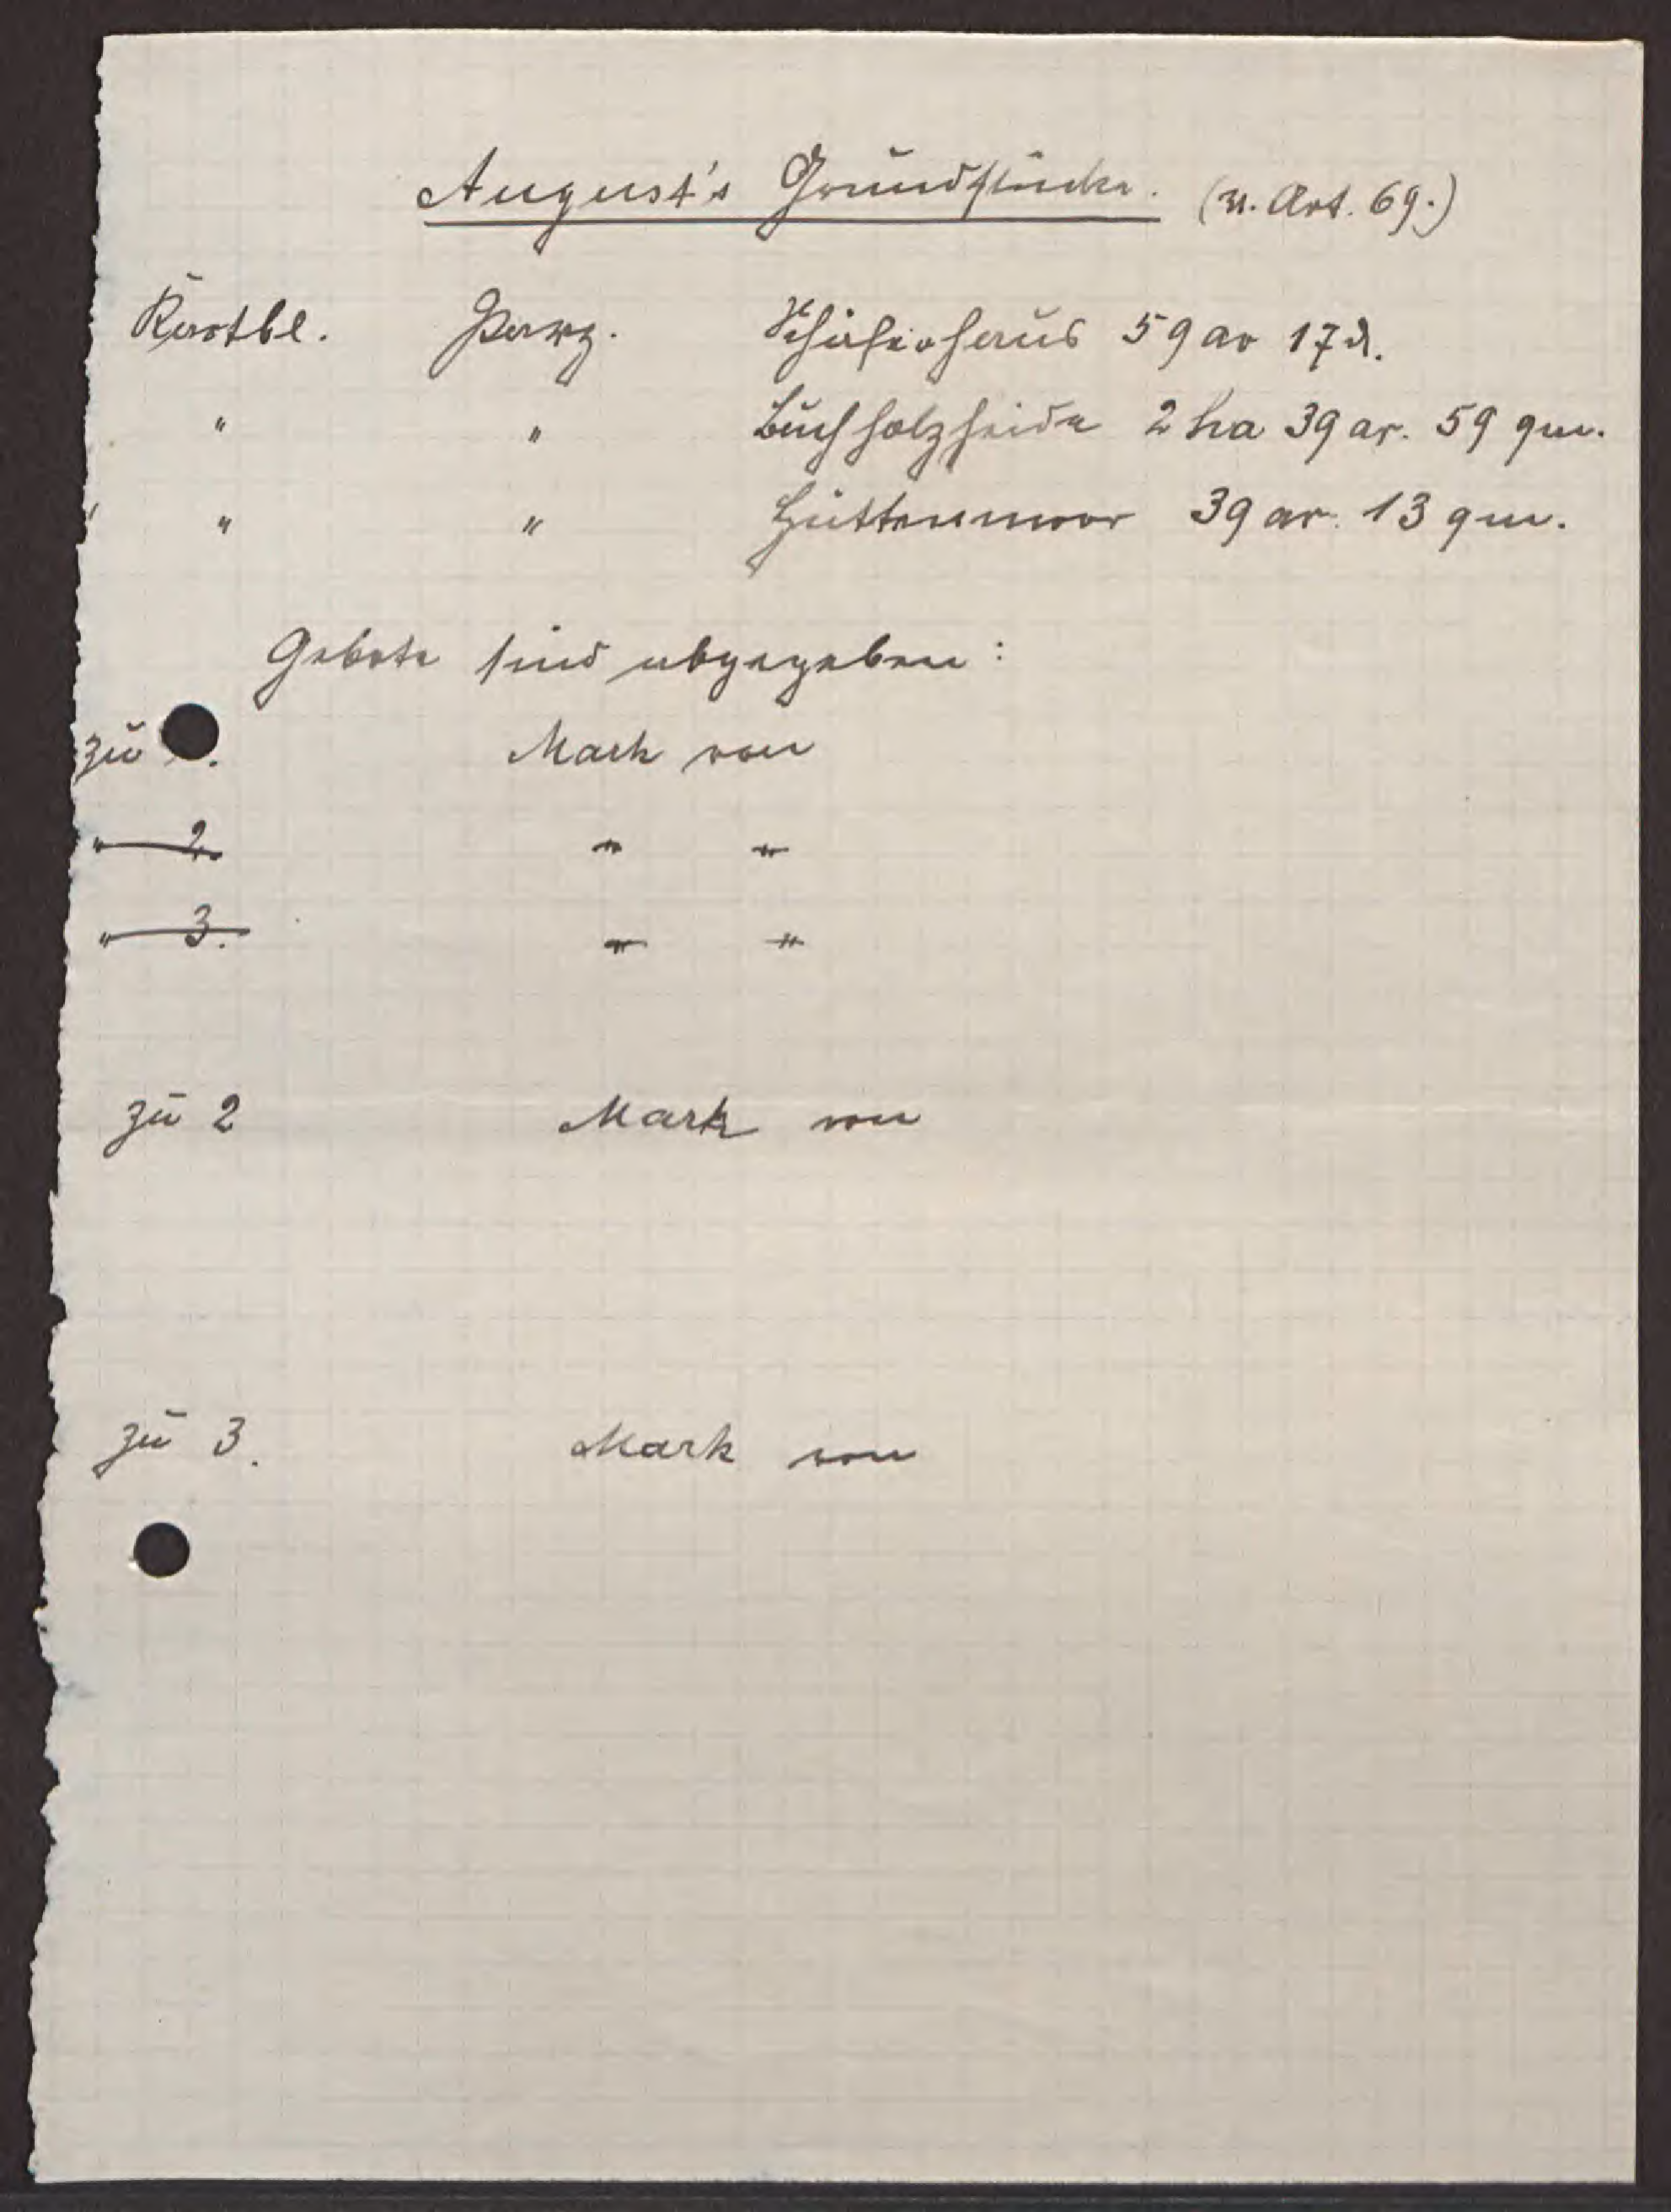 August's Grundstücke. (M. Art. 69.)
Kartbl. Parz. Schäferhaus 59 ar 17
" " Buchholzheide 2 ha 39 ar. 59 qm.
" " Hüttenmoor 39 ar. 13 qm.
Gebote sind abgegeben:
zu . Mark von
" 2. " "
" 3. " "
zu 2 Mark von
zu 3. Mark von